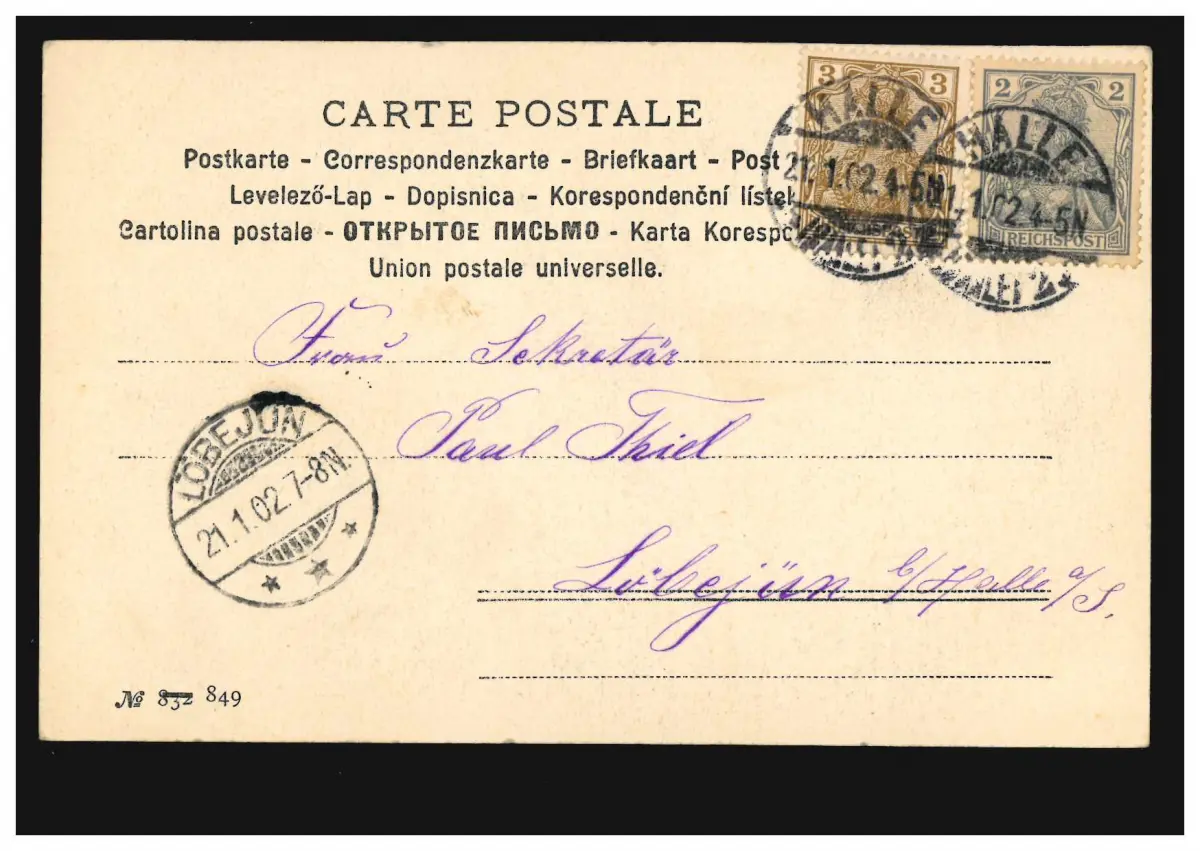 CARTE POSTALE
Postkarte - Correspondenzkarte - Briefkaart - Post
Levelező-Lap - Dopisnica - Korespondenční lístek
Cartolina postale - ОТКРЫТОЕ ПИСЬМО - Karta Koresp
Union postale universelle.
3 3
REICHSPOST
2 2
REICHSPOST
HALLE
21.1.02.4-5N
HALLE
1.1.02.4-5N
Frau Sekretär
Paul Thiel
Löbejün b/Halle a/S.
LÖBEJÜN
21.1.02.7-8N.
№ 832 849